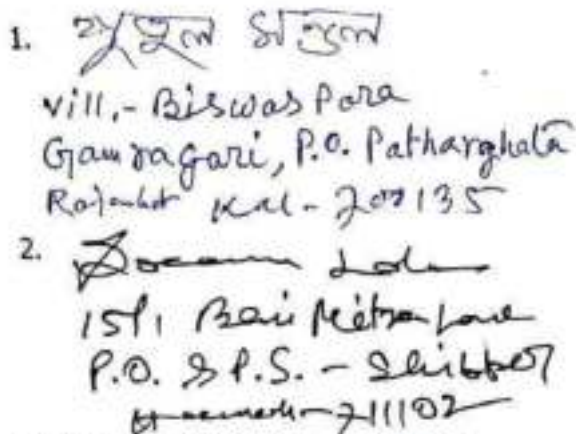 1. পুতুল মণ্ডল
Vill.- Biswas Para
Gamragari, P.O. Patharghata
Rajarhat Kol - 700135
2.
15/1 Beni Mitra Lane
P.O. & P.S. - Shibpur
Howrah - 711102